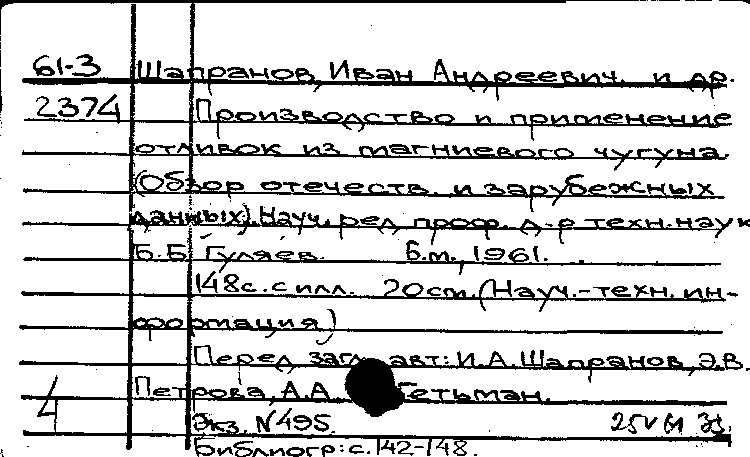 61-3 Шапранов, Иван Андреевич. и др.
2374 Производство и применение
отливок из магниевого чугуна
(Обзор отечеств. и зарубежных
данных). Науч. ред. проф. д-р техн. наук
Б.Б. Гуляев. Б.м., 1961.
148с. с илл. 20cm. (Науч.-техн. ин-
формация)
Перед загл. авт: И.А. Шапранов, Э.В.
4 Петрова, А.А. Гетьман.
Экз. N495. 25 V 61
Библиогр: с. 142-148.